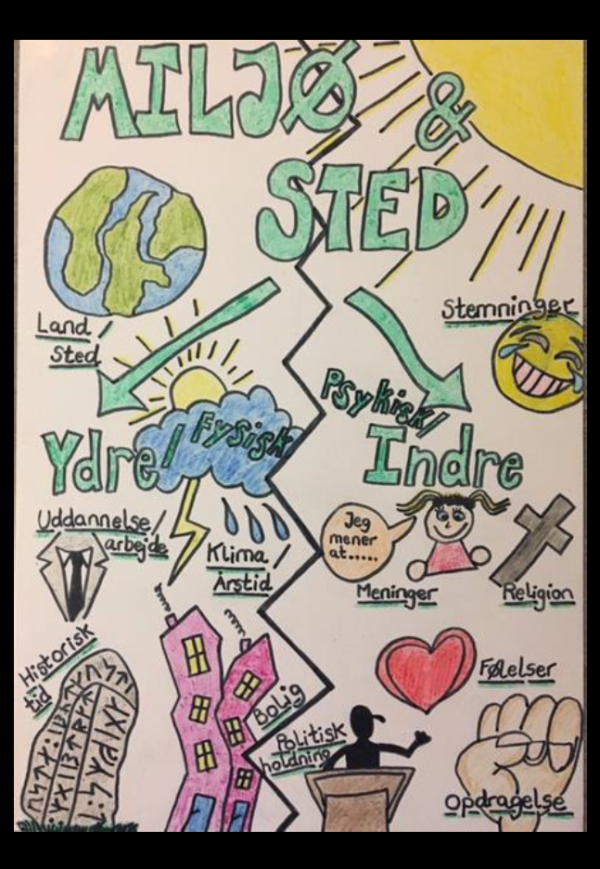 MILJØ &
STED
Land /
Sted
Stemninger
Ydre / Fysisk
Psykisk /
Indre
Uddannelse /
arbejde
Klima /
Årstid
Jeg
mener
at.....
Meninger
Religion
Historisk
tid
Bolig
Følelser
Politisk
holdning
Opdragelse